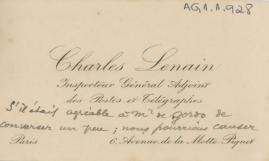 AG1.A.928
Charles Lenain
Inspecteur Général Adjoint
des Postes et Télégraphes
S'il était agréable à Mr de Gordo de
converser un peu ; nous pourrions causer
Paris 6, Avenue de la Motte Piquet